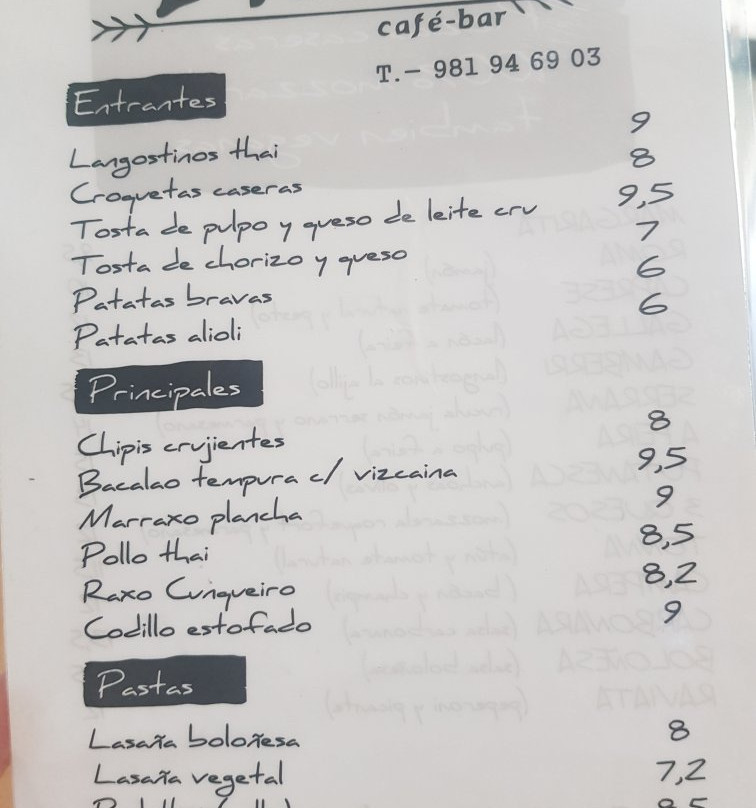 café-bar
T.- 981 94 69 03
Entrantes
Langostinos thai 9
Croquetas caseras 8
Tosta de pulpo y queso de leite cru 9,5
Tosta de chorizo y queso 7
Patatas bravas 6
Patatas alioli 6
Principales
Chipis crujientes 8
Bacalao tempura c/ vizcaina 9,5
Marraxo plancha 9
Pollo thai 8,5
Raxo Cunqueiro 8,2
Codillo estofado 9
Pastas
Lasaña boloñesa 8
Lasaña vegetal 7,2
8,5